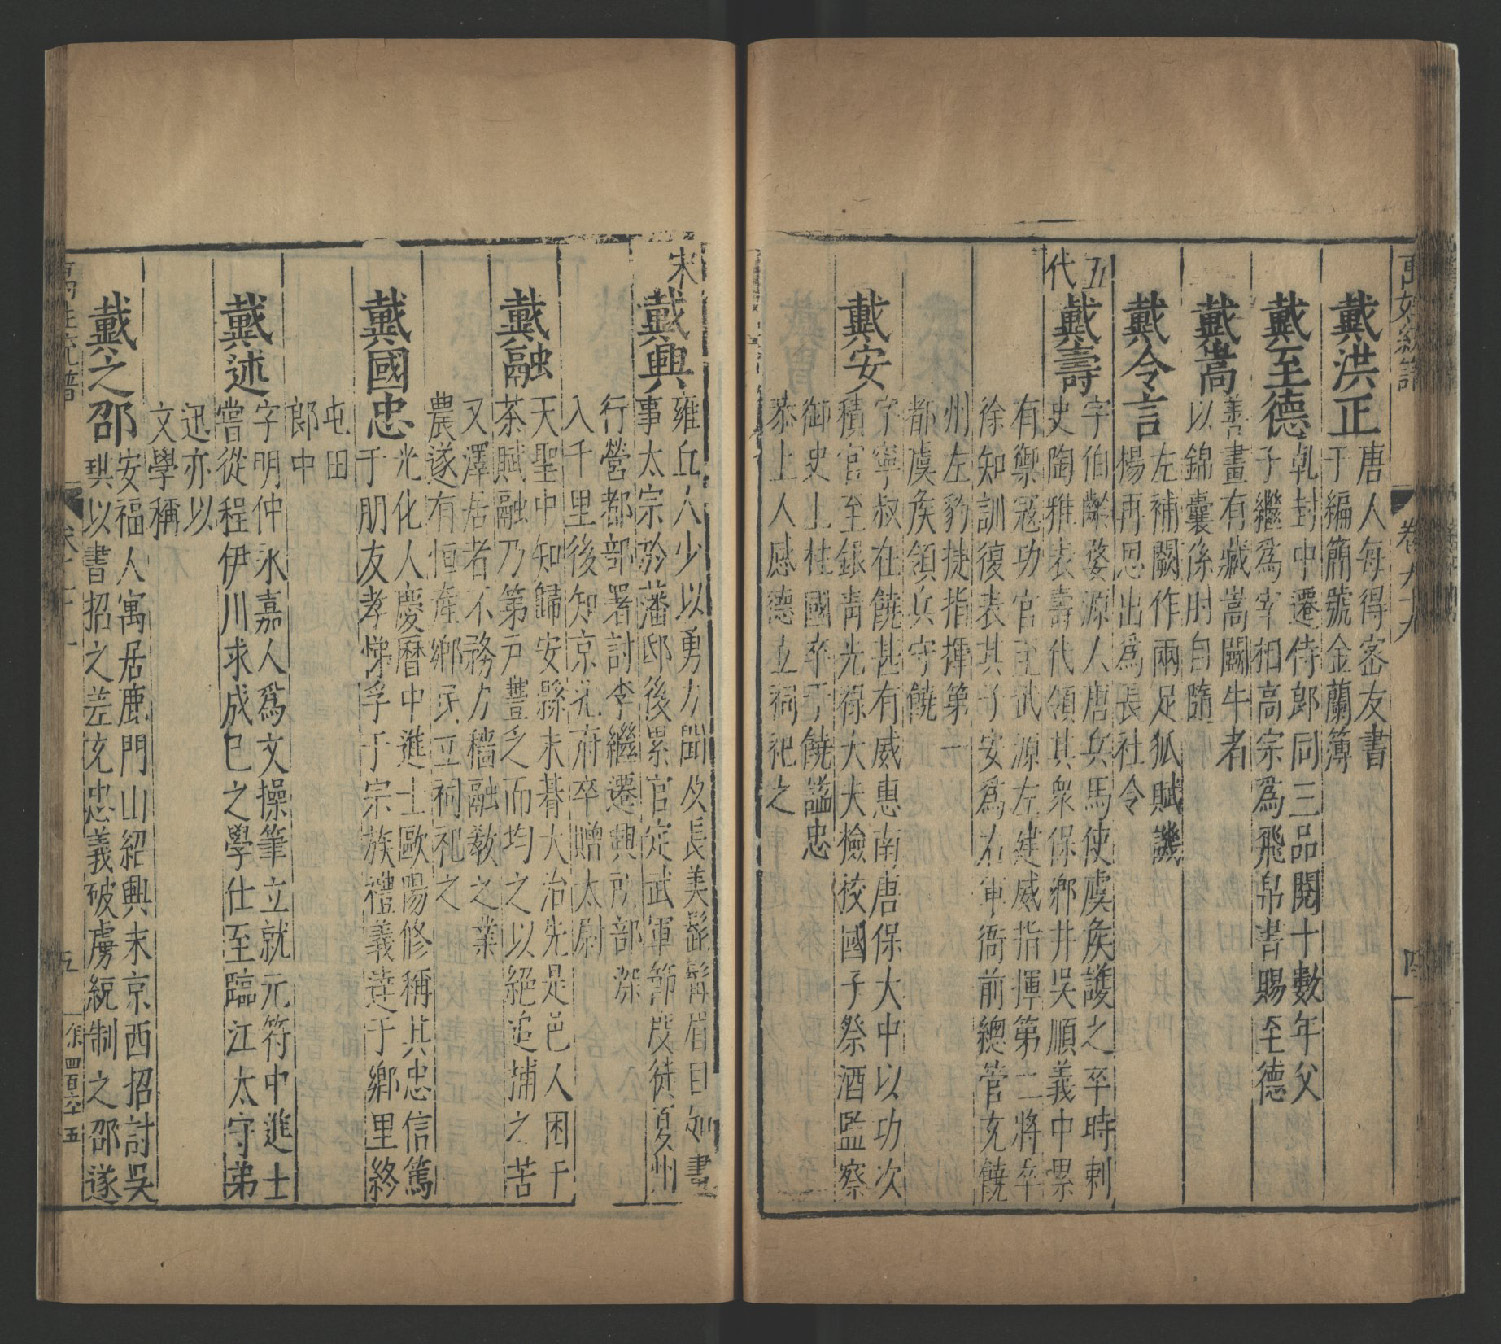 萬姓統譜
卷九十九
四
戴洪正
唐人每得密友書
于編簡號金蘭簿
戴至德
乾封中遷侍郎同三品閱十數年父
子繼為宰相高宗為飛帛書賜至德
戴嵩
善畫有藏嵩鬭牛者
以錦囊係肘自隨
戴令言
左補闕作兩足狐賦譏
楊再思出為長社令
五代
戴壽
字伯齡婺源人唐兵馬使虞矦護之卒時刺
史陶雅表壽代領其衆保鄉井吳順義中累
有禦冦功官至武源左建威指揮第二將卒
徐知訓復表其子安爲右軍衙前總管充饒
州左豹捷指揮第一
都虞矦領兵守饒
戴安
字寧叔在饒甚有威惠南唐保大中以功次
積官至銀青光祿大夫檢校國子祭酒監察
御史上柱國卒于饒謚忠
恭土人感德立祠祀之
宋
戴興
雍丘人少以勇力聞及長美髭髯眉目如畫
事太宗於藩邸後累官定武軍節度徙夏州
行營都部署討李繼遷興所部深
入千里後知京兆府卒贈太尉
戴融
天聖中知歸安縣未朞大治先是邑人困于
茶賦融乃第户豐乏而均之以絕追捕之苦
又澤居者不務力穡融教之業
農遂有恒産鄉民立祠祀之
戴國忠
光化人慶曆中進士歐陽修稱其忠信篤
于朋友孝悌孚于宗族禮義達于鄉里終
屯田
郎中
戴述
字明仲永嘉人爲文操筆立就元符中進士
嘗從程伊川求成已之學仕至臨江太守弟
迅亦以
文學稱
戴之邵
安福人寓居鹿門山紹興末京西招討吳
珙以書招之差充忠義破虜統制之邵遂
萬姓統譜
五